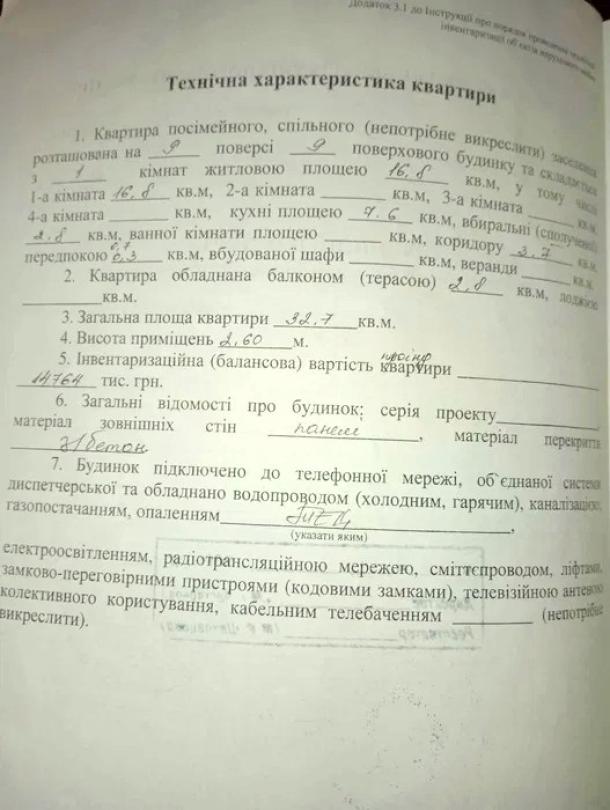 Додаток 3.1 до Інструкції про порядок проведення технічної
інвентаризації об'єктів нерухомого майна
Технічна характеристика квартири
1. Квартира посімейного, спільного (непотрібне викреслити) заселення
розташована на 9 поверсі 9 поверхового будинку та складається
з 1 кімнат житловою площею 16,8 кв.м, у тому числі
1-а кімната 16,8 кв.м, 2-а кімната кв.м, 3-а кімната кв.м,
4-а кімната кв.м, кухні площею 7.6 кв.м, вбиральні (сполученої)
2.8 кв.м, ванної кімнати площею кв.м, коридору 3,7 кв.м,
передпокою 0,7 0,3 кв.м, вбудованої шафи кв.м, веранди кв.м.
2. Квартира обладнана балконом (терасою) 2,8 кв.м, лоджією
кв.м.
3. Загальна площа квартири 32,7 кв.м.
4. Висота приміщень 2,60 м.
5. Інвентаризаційна (балансова) вартість квартири
14764 тис. грн.
6. Загальні відомості про будинок: серія проекту
матеріал зовнішніх стін панелі, матеріал перекриття
з/бетон
7. Будинок підключено до телефонної мережі, об`єднаної системи
диспетчерської та обладнано водопроводом (холодним, гарячим), каналізацією,
газопостачанням, опаленням ,
(указати яким)
електроосвітленням, радіотрансляційною мережею, сміттєпроводом, ліфтами,
замково-переговірними пристроями (кодовими замками), телевізійною антеною
колективного користування, кабельним телебаченням (непотрібне
викреслити).